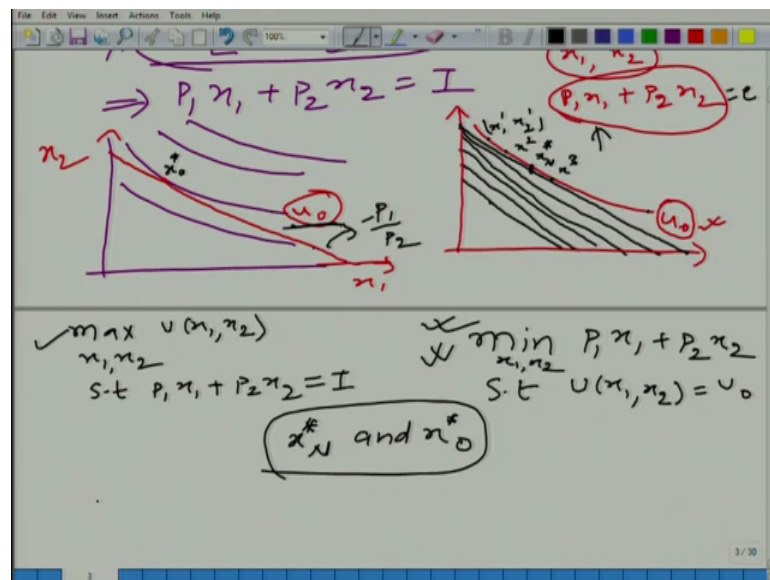 File Edit View Insert Actions Tools Help
100%
B I
⇒ P₁x₁ + P₂x₂ = I
x₁, x₂
P₁x₁ + P₂x₂ = e
x₂
x₀*
u₀
-P₁/P₂
x₁
(x₁', x₂')
x²
x_N*
x³
u₀
max U(x₁, x₂)
x₁, x₂
s.t P₁x₁ + P₂x₂ = I
min P₁x₁ + P₂x₂
x₁, x₂
S.t U(x₁, x₂) = U₀
x*_N and x*_0
3 / 30